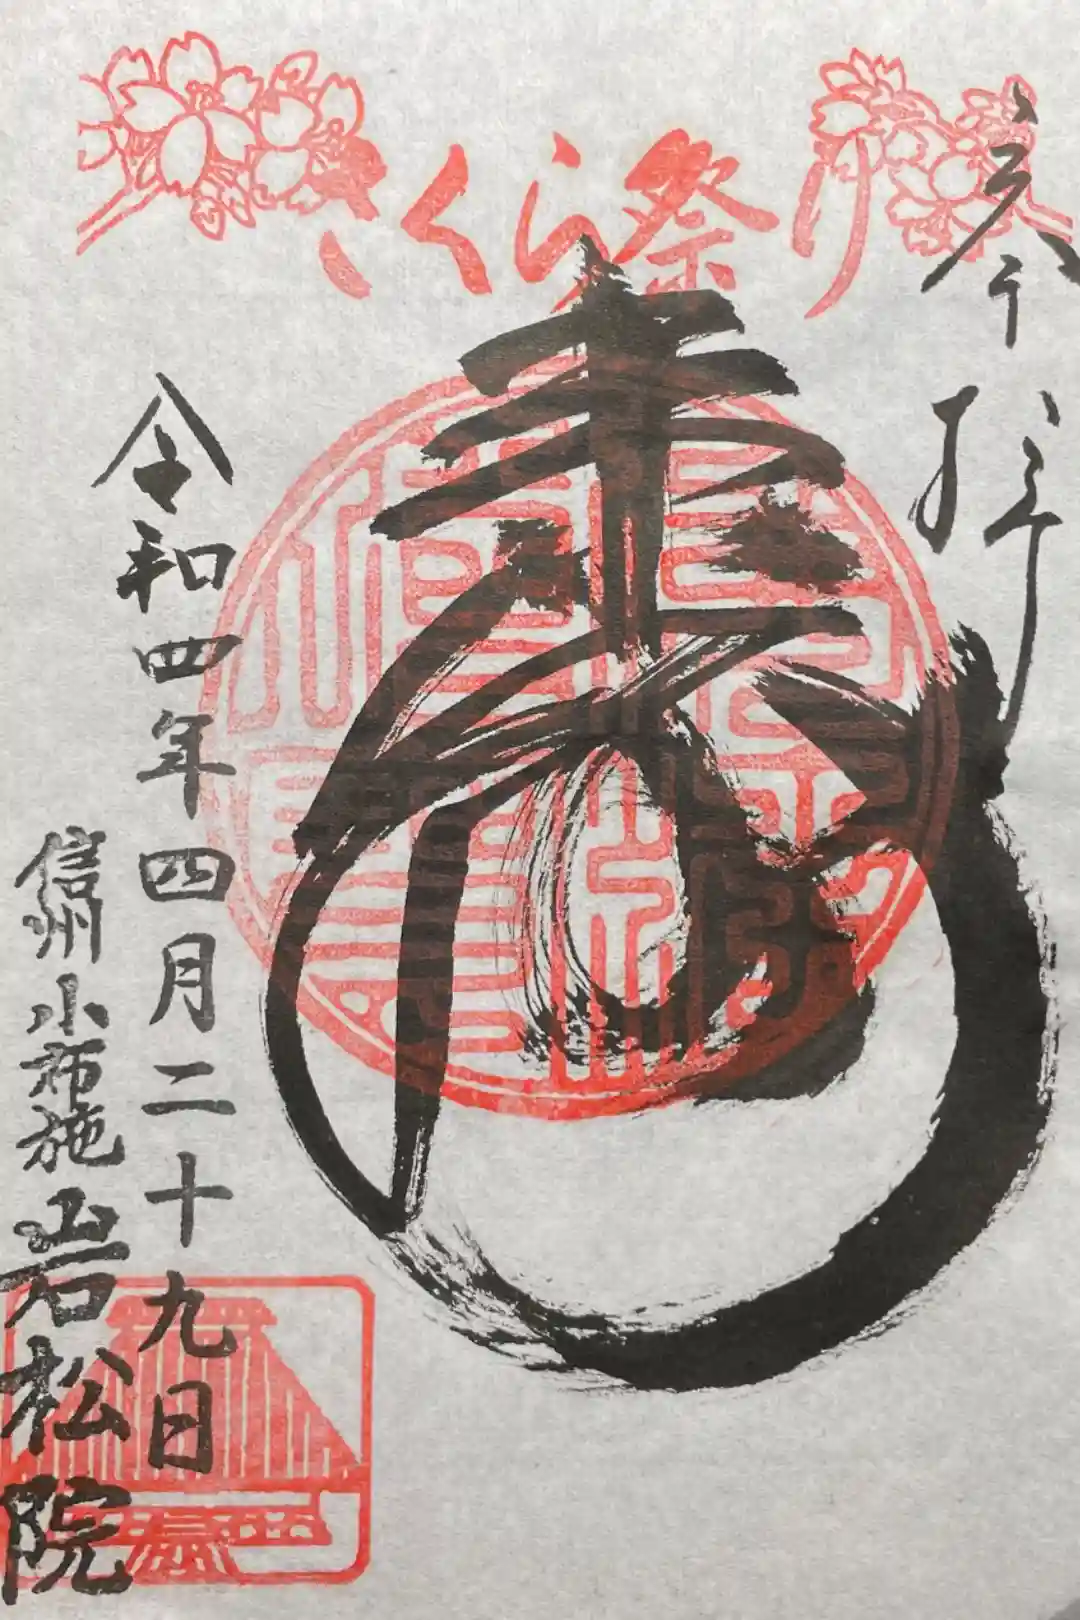 さくら祭り
奉拝
春
令和四年四月二十九日
信州小布施岩松院